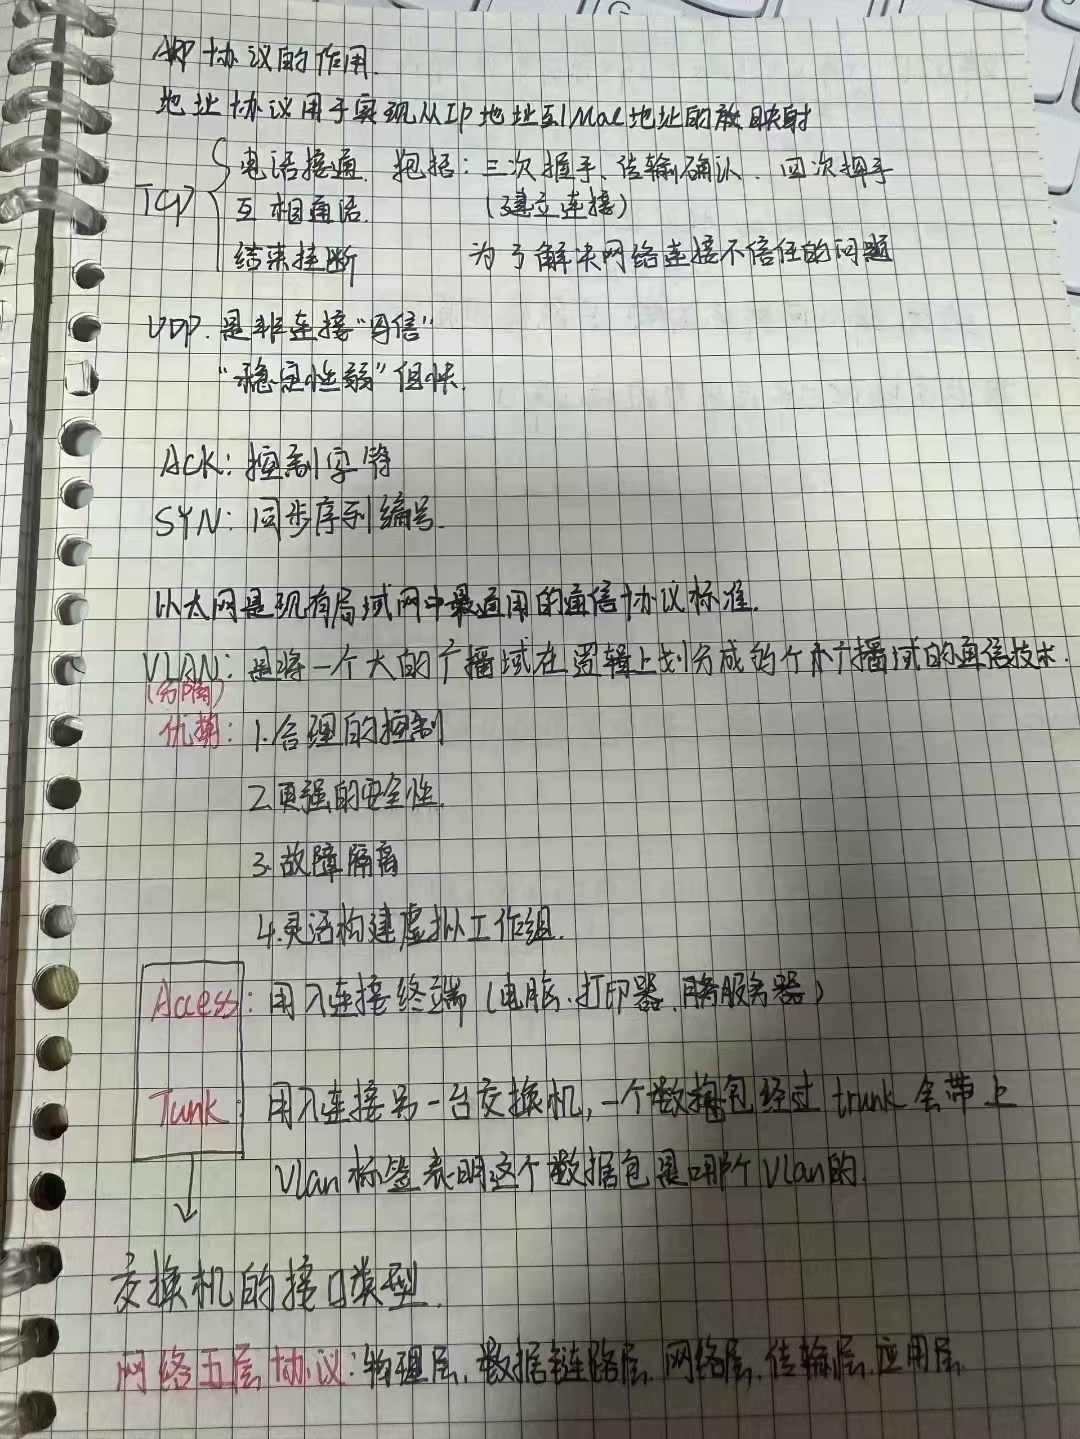 ARP协议的作用.
地址协议用于实现从IP地址到Mac地址的映射
TCP
电话接通. 抱括:三次握手、传输确认、四次挥手
互相通话. (建立连接)
结束挂断 为了解决网络连接不信任的问题
UDP.是非连接"可信"
"稳定性弱"但快.
ACK:控制字符
SYN:同步序列编号.
以太网是现有局域网中最通用的通信协议标准.
VLAN:是将一个大的广播域在逻辑上划分成多个小广播域的通信技术.
(分隔)
优势:1.合理的控制
2.更强的安全性.
3.故障隔离
4.灵活构建虚拟工作组.
Access:用入连接终端(电脑、打印器、服务器)
Tunk:用入连接另一台交换机,一个数据包经过trunk会带上
Vlan标签表明这个数据包是哪个Vlan的.
交换机的接口类型.
网络五层协议:物理层.数据链路层.网络层.传输层.应用层.